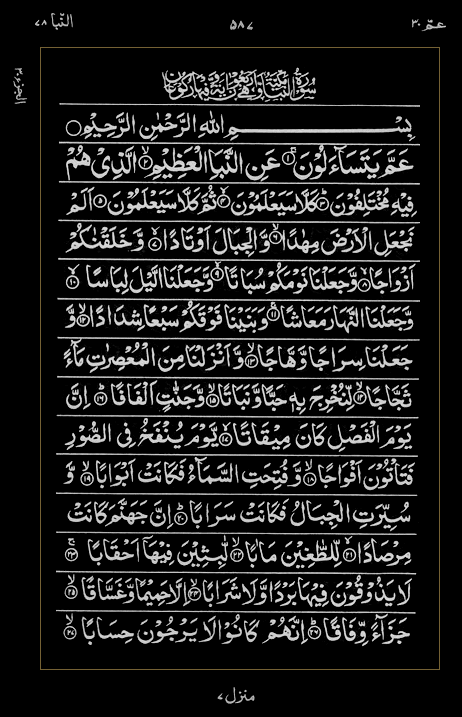 عمّ ٣٠
٥٨٧
النّبا ٧٨
بِسْمِ اللهِ الرَّحْمٰنِ الرَّحِيْمِ
عَمَّ يَتَسَآءَلُوْنَ ۝١ عَنِ النَّبَاِ الْعَظِيْمِ ۝٢ الَّذِيْ هُمْ
فِيْهِ مُخْتَلِفُوْنَ ۝٣ كَلَّا سَيَعْلَمُوْنَ ۝٤ ثُمَّ كَلَّا سَيَعْلَمُوْنَ ۝٥ اَلَمْ
نَجْعَلِ الْاَرْضَ مِهٰدًا ۝٦ وَّالْجِبَالَ اَوْتَادًا ۝٧ وَّخَلَقْنٰكُمْ
اَزْوَاجًا ۝٨ وَّجَعَلْنَا نَوْمَكُمْ سُبَاتًا ۝٩ وَّجَعَلْنَا الَّيْلَ لِبَاسًا ۝١٠
وَّجَعَلْنَا النَّهَارَ مَعَاشًا ۝١١ وَّبَنَيْنَا فَوْقَكُمْ سَبْعًا شِدَادًا ۝١٢ وَّ
جَعَلْنَا سِرَاجًا وَّهَّاجًا ۝١٣ وَّاَنْزَلْنَا مِنَ الْمُعْصِرٰتِ مَآءً
ثَجَّاجًا ۝١٤ لِّنُخْرِجَ بِهٖ حَبًّا وَّنَبَاتًا ۝١٥ وَّجَنّٰتٍ اَلْفَافًا ۝١٦ اِنَّ
يَوْمَ الْفَصْلِ كَانَ مِيْقَاتًا ۝١٧ يَّوْمَ يُنْفَخُ فِى الصُّوْرِ
فَتَاْتُوْنَ اَفْوَاجًا ۝١٨ وَّفُتِحَتِ السَّمَآءُ فَكَانَتْ اَبْوَابًا ۝١٩ وَّ
سُيِّرَتِ الْجِبَالُ فَكَانَتْ سَرَابًا ۝٢٠ اِنَّ جَهَنَّمَ كَانَتْ
مِرْصَادًا ۝٢١ لِّلطَّاغِيْنَ مَاٰبًا ۝٢٢ لّٰبِثِيْنَ فِيْهَآ اَحْقَابًا ۝٢٣
لَا يَذُوْقُوْنَ فِيْهَا بَرْدًا وَّلَا شَرَابًا ۝٢٤ اِلَّا حَمِيْمًا وَّغَسَّاقًا ۝٢٥
جَزَآءً وِّفَاقًا ۝٢٦ اِنَّهُمْ كَانُوْا لَا يَرْجُوْنَ حِسَابًا ۝٢٧
منزل ٧